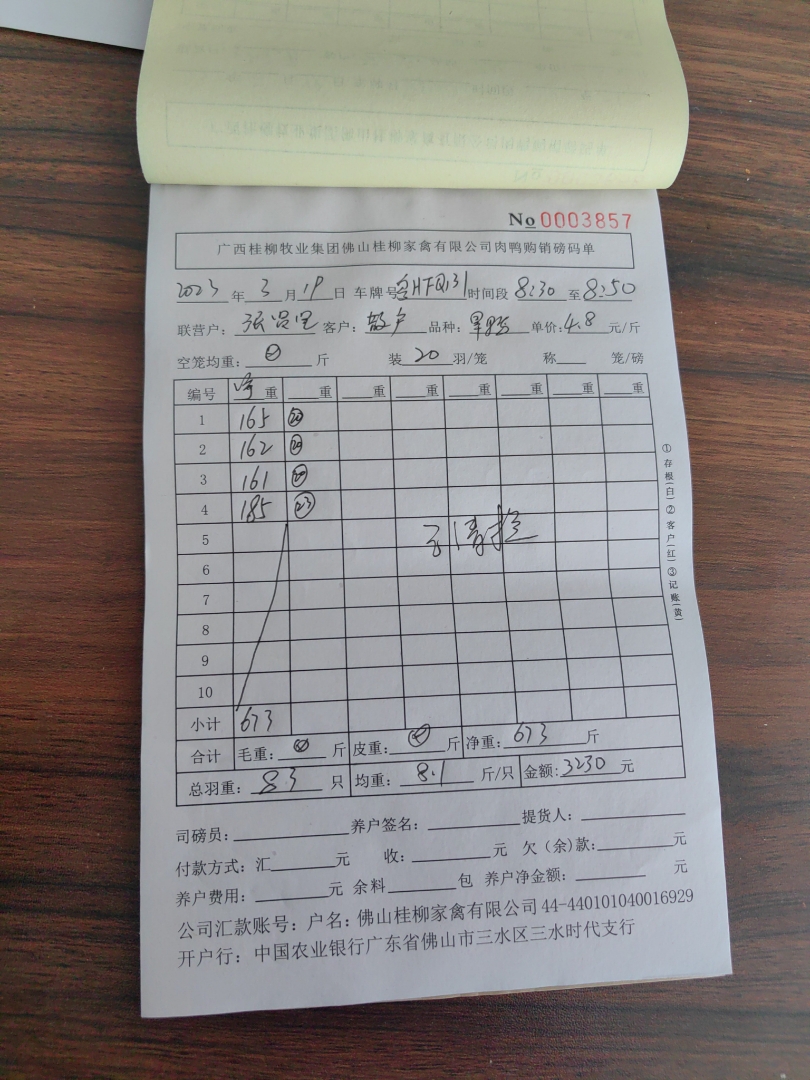 No 0003857
广西桂柳牧业集团佛山桂柳家禽有限公司肉鸭购销磅码单
2023 年 3 月 19 日 车牌号 时间段 8:30 至 8:50
联营户: 客户: 散户 品种: 单价: 4.8 元/斤
空笼均重: 斤 装 20 羽/笼 称 笼/磅
编号 净重 重 重 重 重 重 重 重
1 165 20
2 162 20
3 161 20
4 185 23
5
6
7
8
9
10
小计 673
合计 毛重: 斤 皮重: 斤 净重: 673 斤
总羽重: 83 只 均重: 8.1 斤/只 金额: 3230 元
司磅员: 养户签名: 提货人:
付款方式: 汇 元 收: 元 欠(余)款: 元
养户费用: 元 余料 包 养户净金额: 元
公司汇款账号: 户名: 佛山桂柳家禽有限公司 44-440101040016929
开户行: 中国农业银行广东省佛山市三水区三水时代支行
①存根(白)②客户(红)③记账(黄)